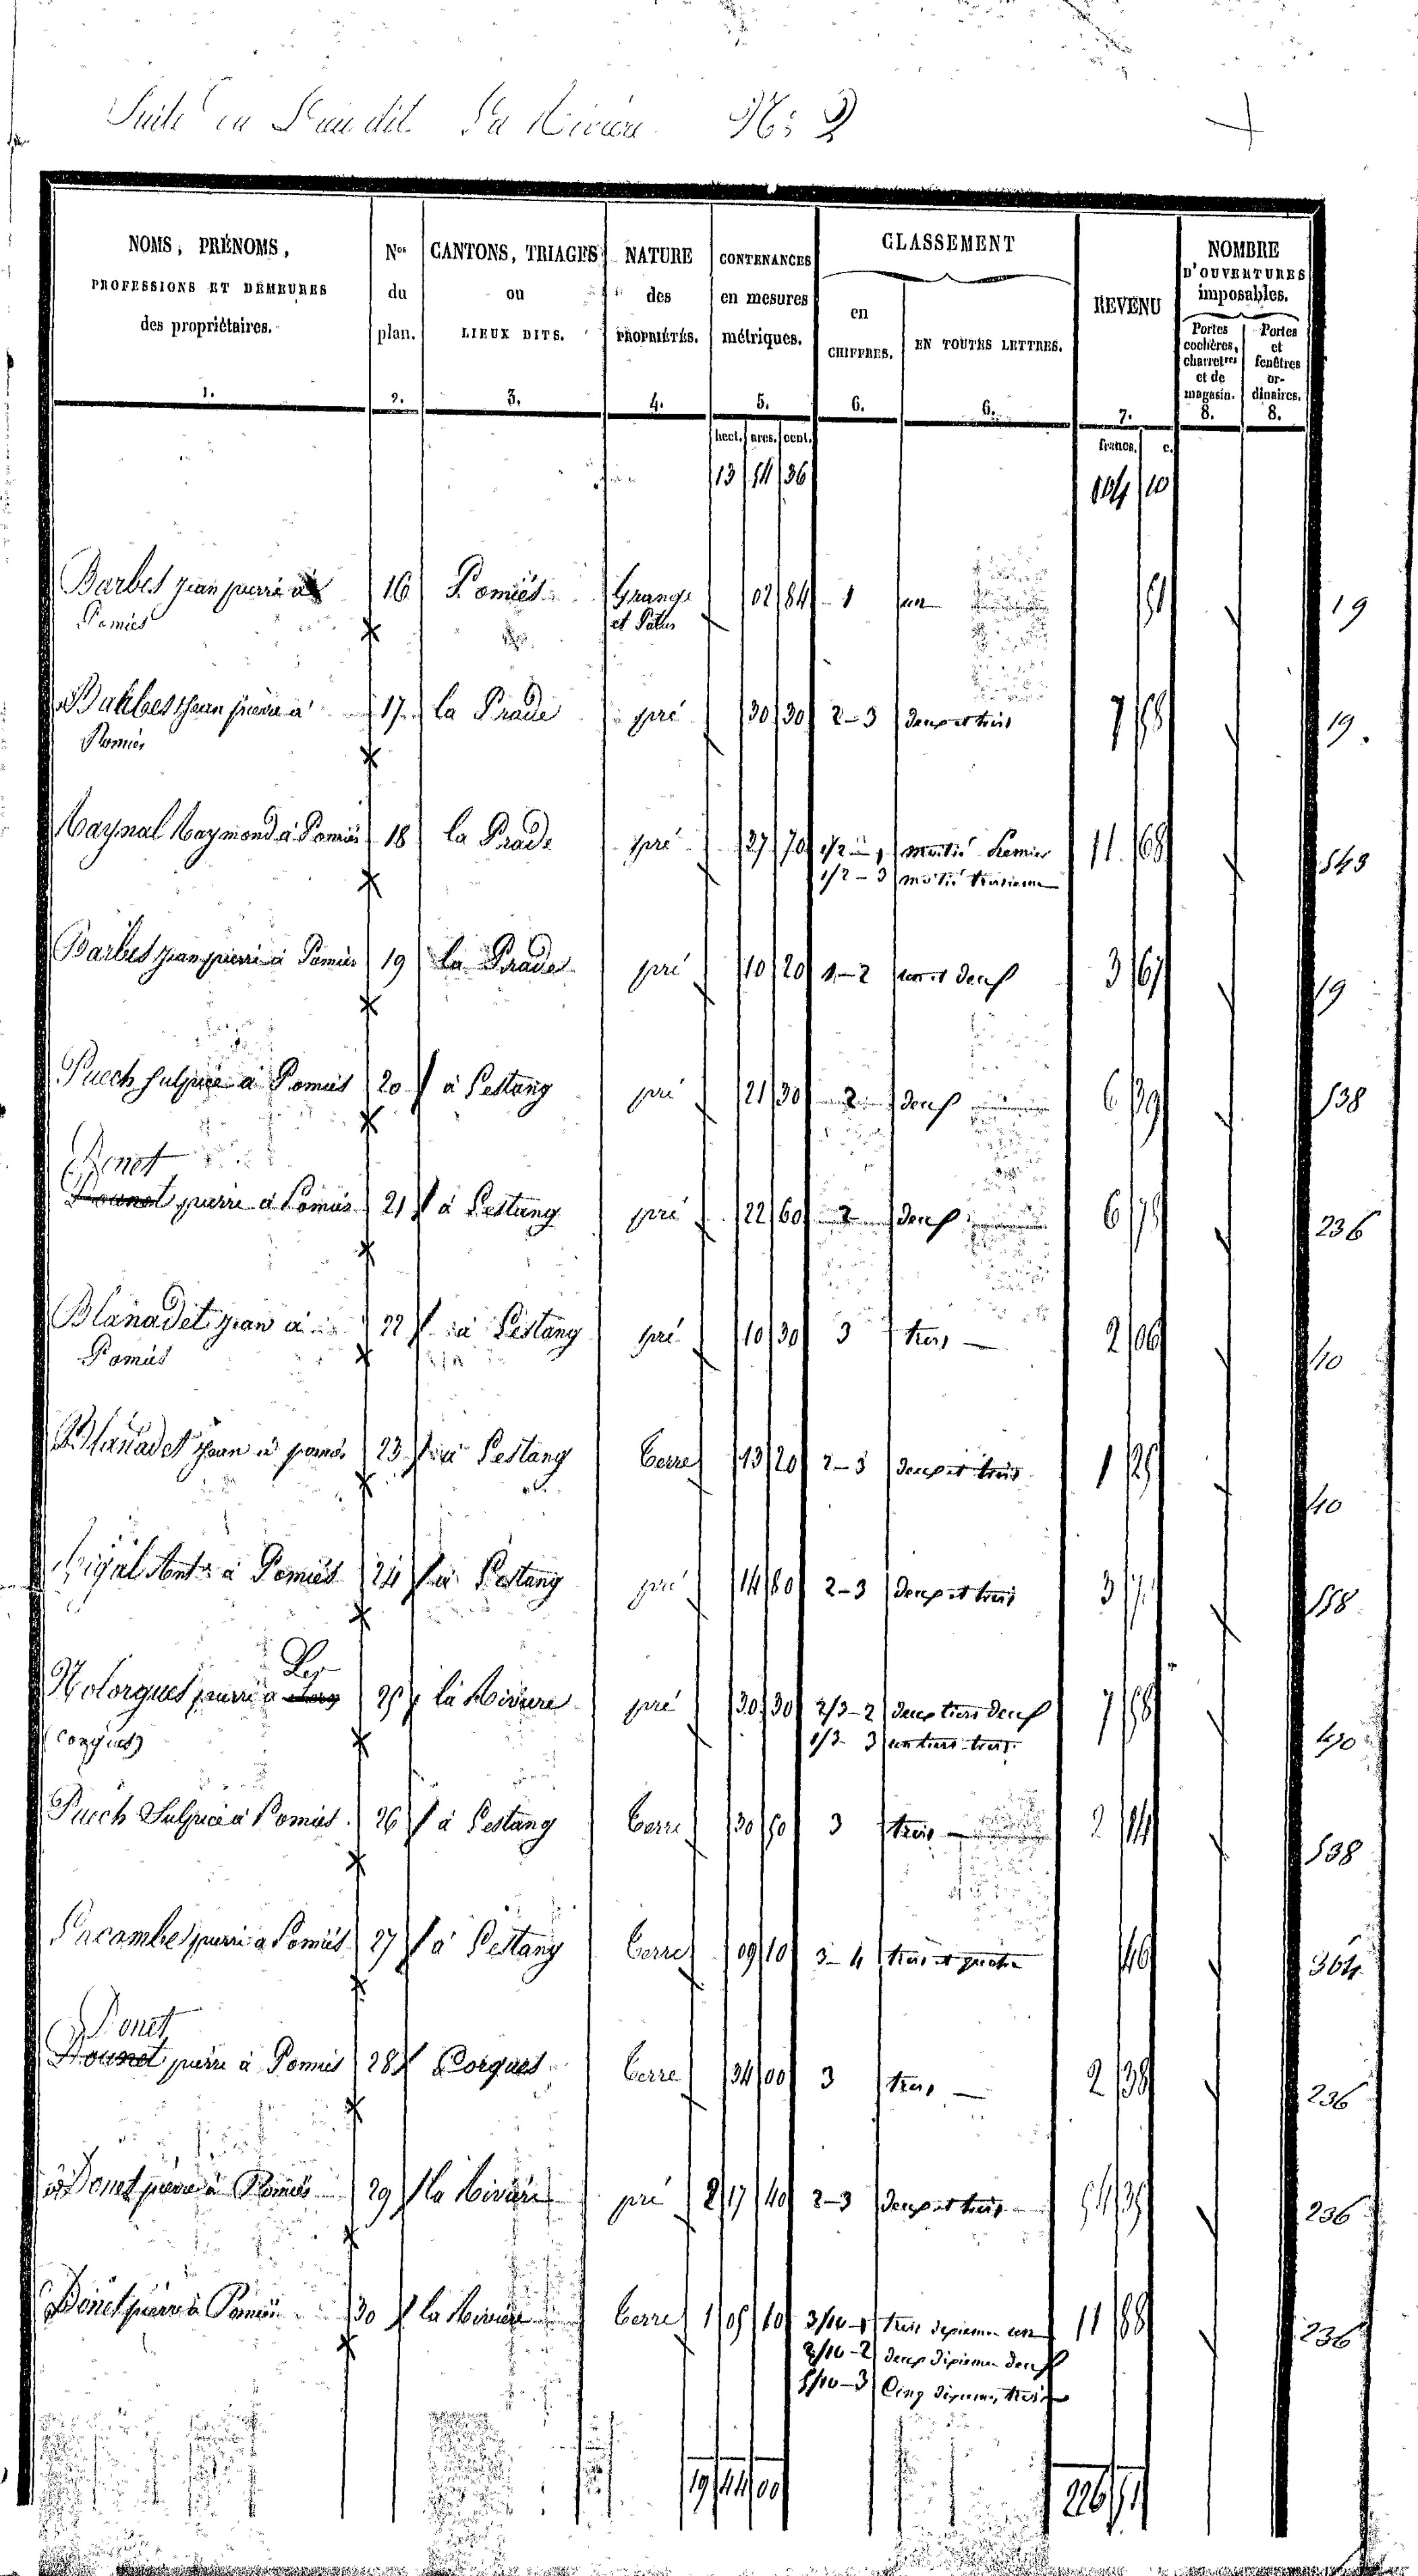 Suite du Lieu dit La Rivière N° 2
NOMS, PRÉNOMS, PROFESSIONS ET DEMEURES des propriétaires. 1.
Nos du plan. 2.
CANTONS, TRIAGES ou LIEUX DITS. 3.
NATURE des PROPRIÉTÉS. 4.
CONTENANCES en mesures métriques. 5.
CLASSEMENT
en CHIFFRES. 6.
EN TOUTES LETTRES. 6.
REVENU 7.
NOMBRE D'OUVERTURES imposables.
Portes cochères, charretres et de magasin. 8.
Portes et fenêtres ordinaires. 8.
hect. ares. cent. francs. c.
13 54 36 104 10
Barbes jean pierre à 16 Pomiés Grange 02 84 1 un 51 19
Pomiés et Patus
Barbes jean pierre à 17 la Prade pré 30 30 2-3 deux et trois 7 58 19
Pomiés
Raynal Raymond à Pomiés 18 la Prade pré 37 70 1/2 - 1 moitié Premier 11 68 543
1/2 - 3 moitié troisieme
Barbes jean pierre à Pomiés 19 la Prade pré 10 20 1-2 un et deux 3 67 19
Puech Sulpice à Pomiés 20 à Lestang pré 21 30 2 deux 6 39 538
Donet
pierre à Pomiés 21 à Lestang pré 22 60 2 deux 6 78 236
Blanadet jean à 22 à Lestang pré 10 30 3 trois 2 06 40
Pomiés
Blanadet jean à pomiés 23 à Lestang Terre 13 20 2-3 deux et trois 1 25 40
Rigal Ant.e à Pomiés 24 à Lestang pré 14 80 2-3 deux et trois 3 7 558
Les
Molorgues pierre à 25 la Riviere pré 30 30 2/3-2 deux tiers deux 7 58 490
Corgues 1/3 3 un tiers trois
Puech Sulpice à Pomiés 26 à Lestang Terre 30 50 3 trois 2 14 538
Lacambe pierre à Pomiés 27 à Lestang Terre 09 10 3-4 trois et quatre 46 364
Donet
Dounet pierre à Pomiés 28 Corgues Terre 34 00 3 trois 2 38 236
Donet pierre à Pomiés 29 la Riviere pré 2 17 40 2-3 deux et trois 54 35 236
Donet pierre à Pomiés 30 la Riviere Terre 1 05 10 3/10-1 trois dixiemes un 11 88 236
2/10-2 deux dixiemes deux
5/10-3 Cinq dixiemes trois
19 44 00 226 51